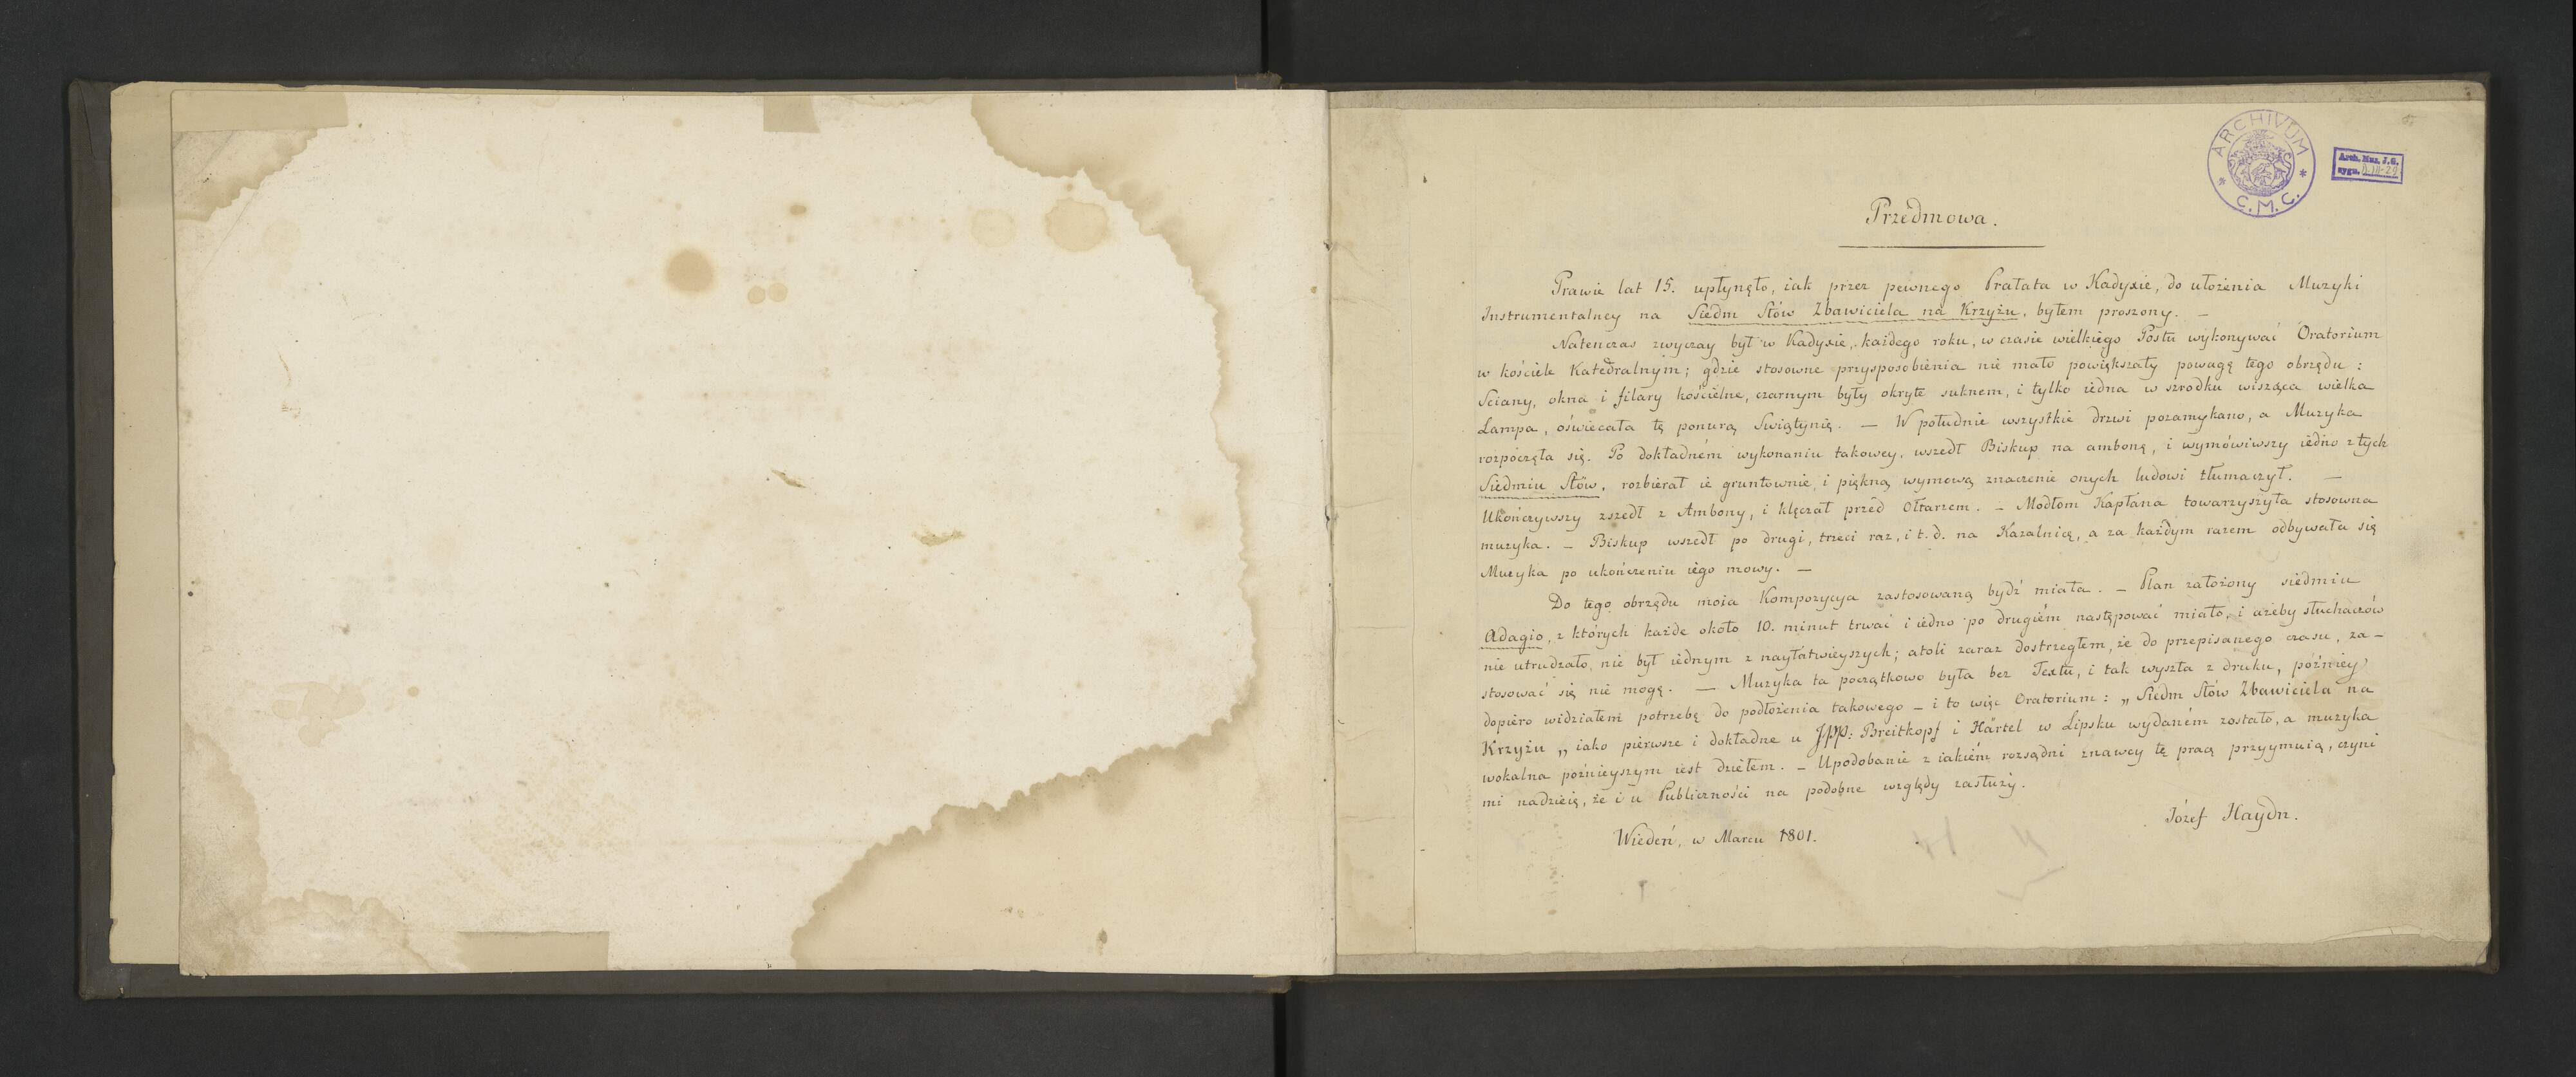 ARCHIVUM
* C.M.C. *
Arch. Mus. J. G.
sygn.
Przedmowa.
Prawie lat 15. upłynęło, iak przez pewnego Prałata w Kadyxie, do ułożenia Muzyki
Instrumentalney na Siedm Słów Zbawiciela na Krzyżu, byłem proszony. –
Natenczas zwyczay był w Kadyxie, każdego roku, w czasie wielkiego Postu wykonywać Oratorium
w kościele Katedralnym; gdzie stosowne przysposobienia nie mało powiększały powagę tego obrzędu:
Sciany, okna i filary kościelne, czarnym były okryte suknem, i tylko iedna w szrodku wisząca wielka
Lampa, oświecała tę ponurą Swiątynię. — W południe wszystkie drzwi pozamykano, a Muzyka
rozpoczęła się. Po dokładném wykonaniu takowey, wszedł Biskup na ambonę, i wymówiwszy iedno z tych
Siedmiu Słów, rozbierał ie gruntownie, i piękną wymową znaczenie onych ludowi tłumaczył. —
Ukończywszy zszedł z Ambony, i klęczał przed Ołtarzem. – Modłom Kapłana towarzyszyła stosowna
muzyka. – Biskup wszedł po drugi, trzeci raz, i t. d. na Kazalnicę, a za każdym razem odbywała się
Muzyka po ukończeniu iego mowy. —
Do tego obrzędu moia Kompozycya zastosowaną bydź miała. – Plan założony siedmiu
Adagio, z których każde około 10. minut trwać i iedno po drugiém następować miało, i ażeby słuchaczów
nie utrudzało, nie był iednym z nayłatwieyszych; atoli zaraz dostrzegłem, że do przepisanego czasu, za-
stosować się nie mogę. — Muzyka ta początkowo była bez Textu, i tak wyszła z druku, późniey
dopiero widziałem potrzebę do podłożenia takowego – i to więc Oratorium: „Siedm Słów Zbawiciela na
Krzyżu„ iako pierwsze i dokładne u JPP: Breitkopf i Härtel w Lipsku wydaném zostało, a muzyka
wokalna poźnieyszym iest dziełem. – Upodobanie z iakiém rozsądni znawcy tę pracę przyymuią, czyni
mi nadzieię, że i u Publiczności na podobne względy zasłuży.
Józef Haydn.
Wiedeń, w Marcu 1801.